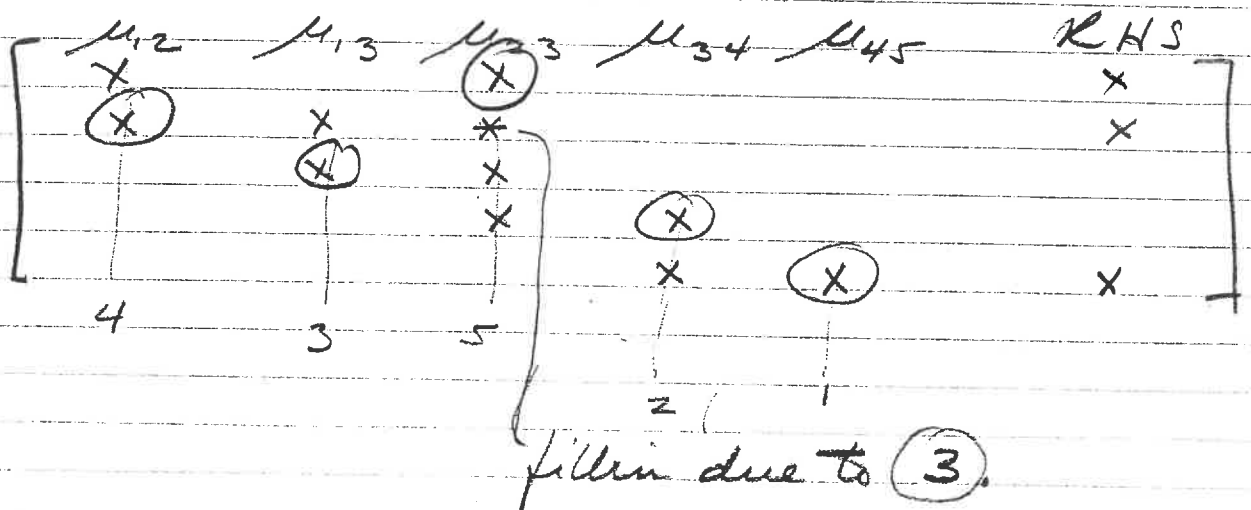 μ12 μ13 μ23 μ34 μ45 RHS
x x x
x x x x
x x
x x
x x x
4 3 5
2 1
fillin due to 3.